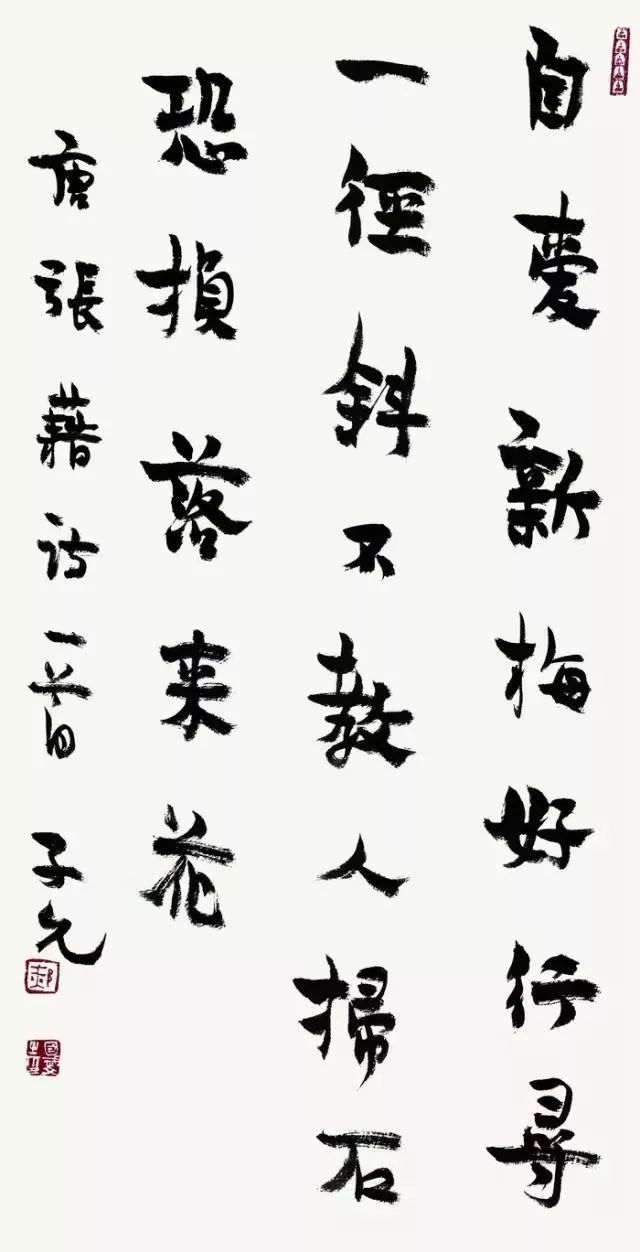 自愛新梅好行尋
一徑斜不教人掃石
恐損落来花
唐張藉詩一首 子允
郝